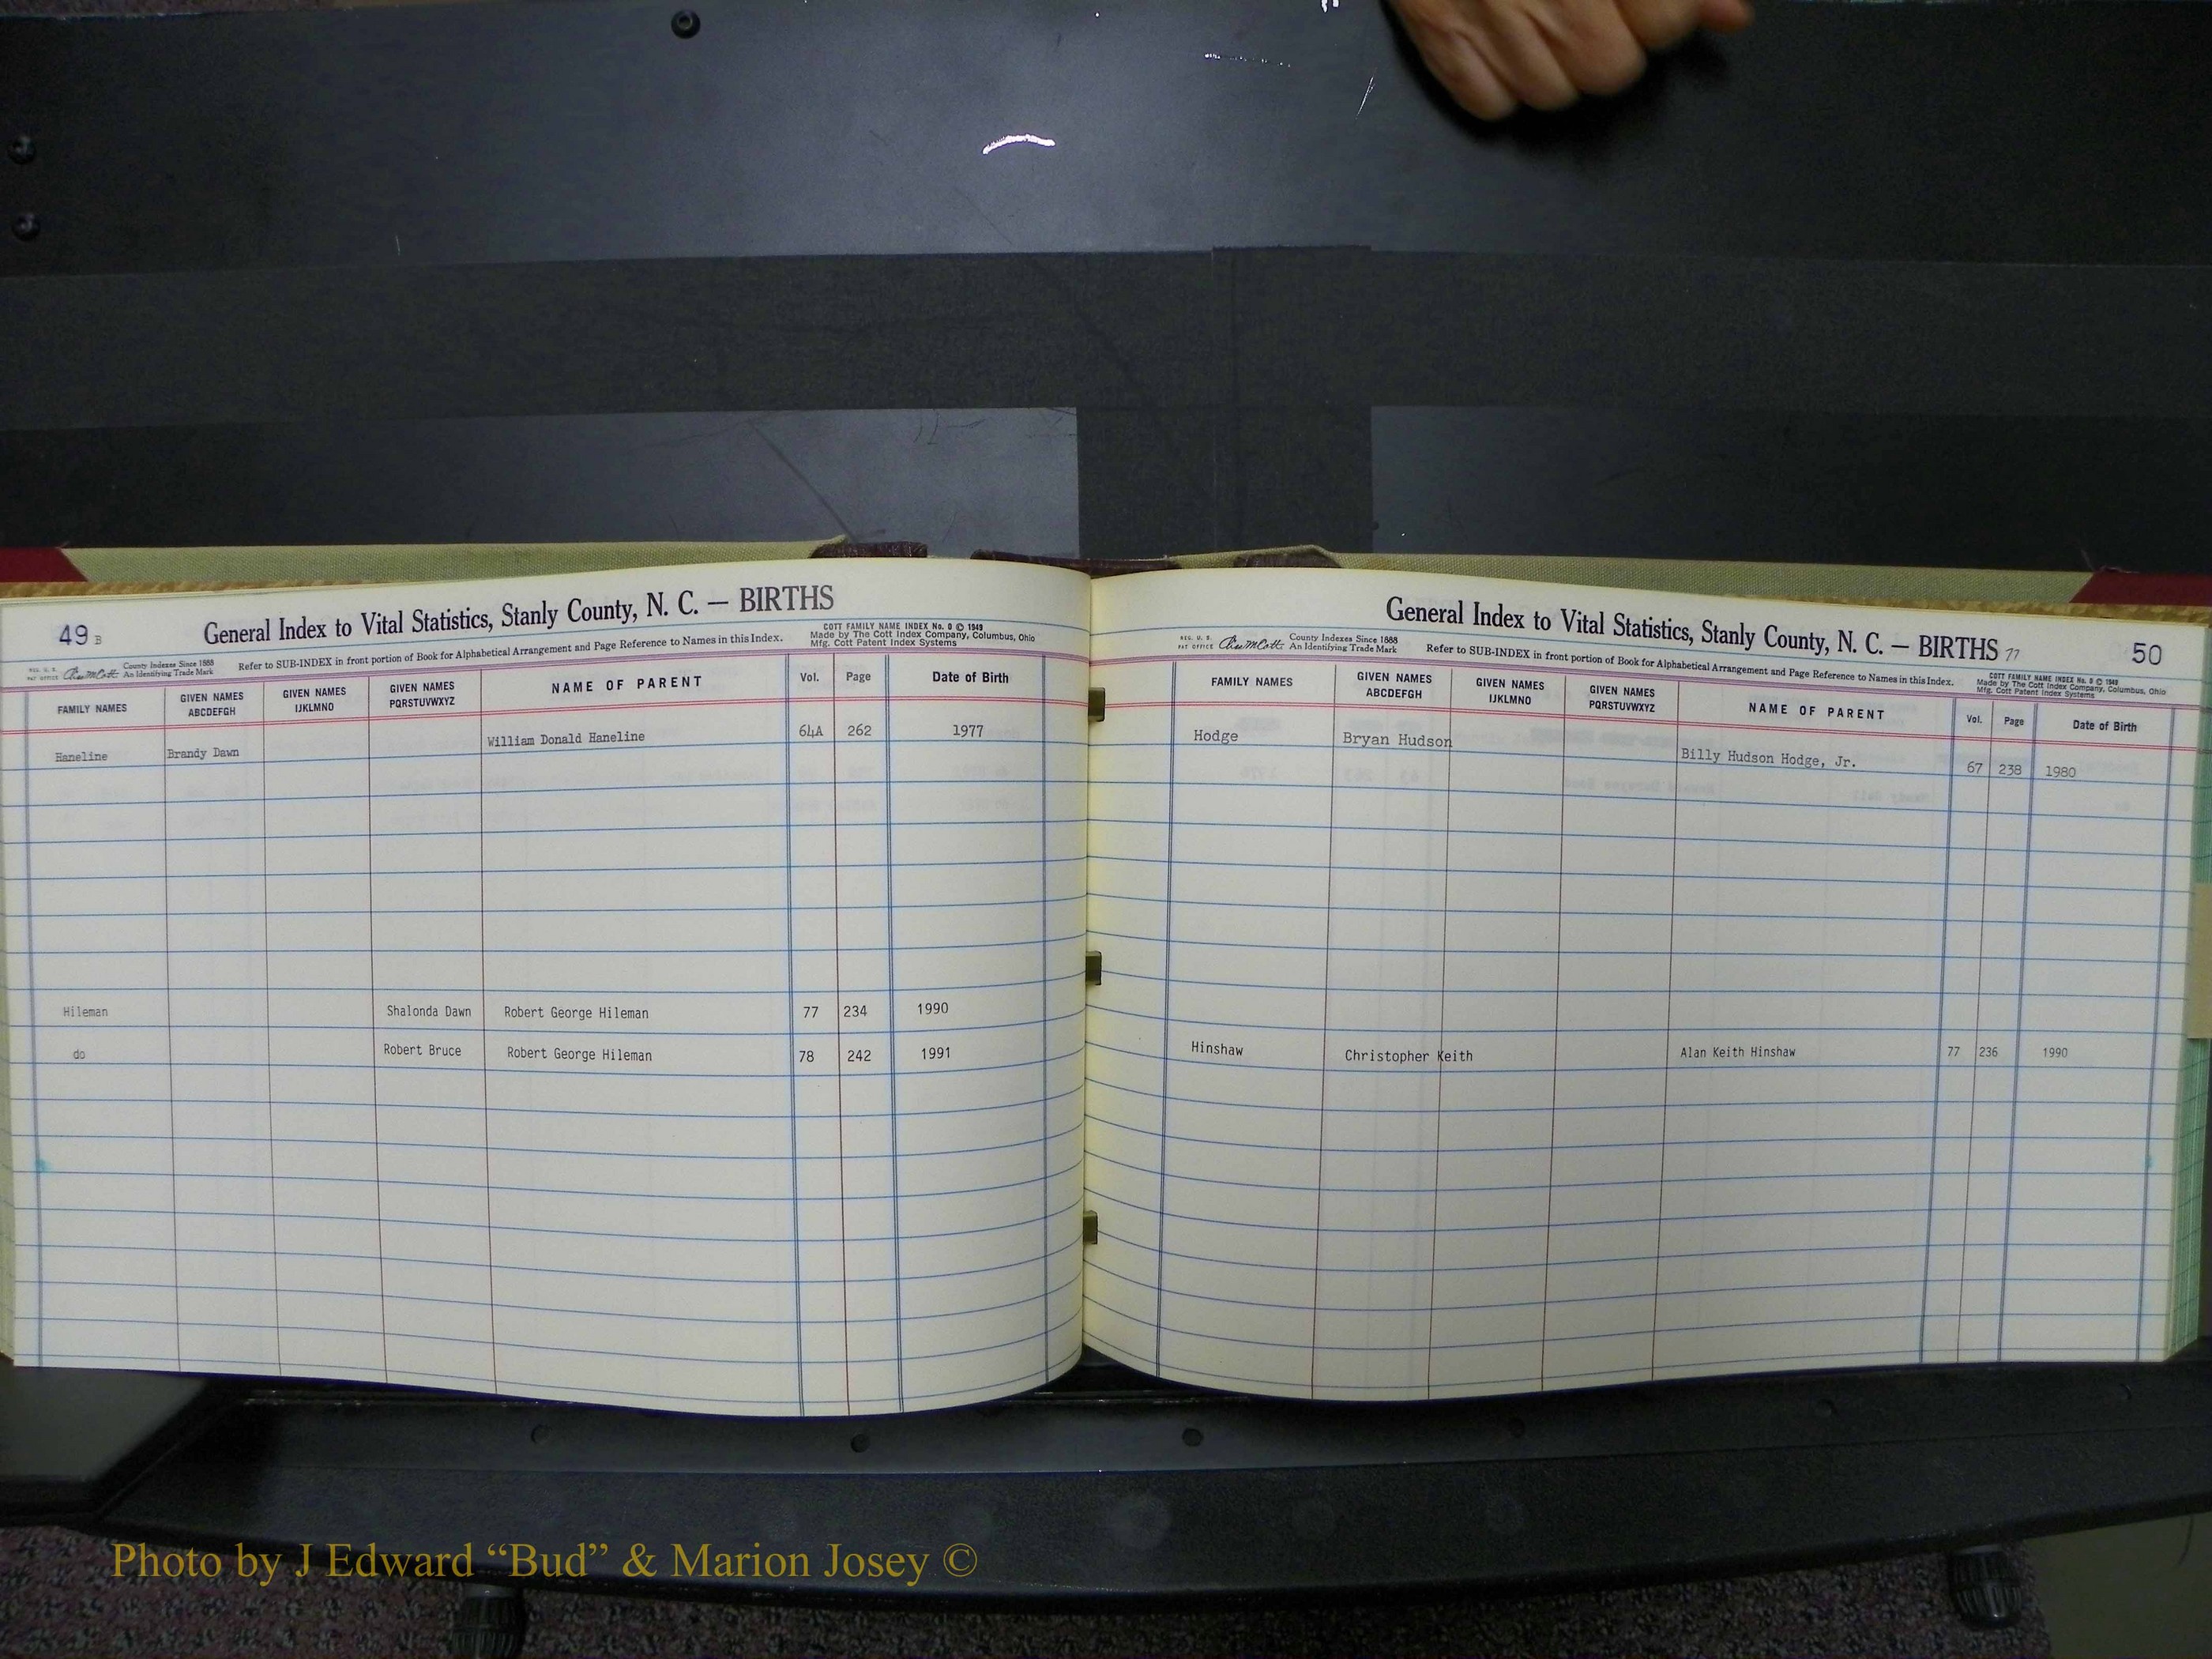 49 B
General Index to Vital Statistics, Stanly County, N. C. — BIRTHS
COTT FAMILY NAME INDEX No. 0 © 1949
Made by The Cott Index Company, Columbus, Ohio
Mfg. Cott Patent Index Systems
REG. U. S.
PAT OFFICE
County Indexes Since 1888
An Identifying Trade Mark
Refer to SUB-INDEX in front portion of Book for Alphabetical Arrangement and Page Reference to Names in this Index.
FAMILY NAMES | GIVEN NAMES ABCDEFGH | GIVEN NAMES IJKLMNO | GIVEN NAMES PQRSTUVWXYZ | NAME OF PARENT | Vol. | Page | Date of Birth
Haneline Brandy Dawn William Donald Haneline 64A 262 1977
Hileman Shalonda Dawn Robert George Hileman 77 234 1990
do Robert Bruce Robert George Hileman 78 242 1991
General Index to Vital Statistics, Stanly County, N. C. — BIRTHS 77
50
REG. U. S.
PAT OFFICE
County Indexes Since 1888
An Identifying Trade Mark
Refer to SUB-INDEX in front portion of Book for Alphabetical Arrangement and Page Reference to Names in this Index.
COTT FAMILY NAME INDEX No. 0 © 1949
Made by The Cott Index Company, Columbus, Ohio
Mfg. Cott Patent Index Systems
FAMILY NAMES | GIVEN NAMES ABCDEFGH | GIVEN NAMES IJKLMNO | GIVEN NAMES PQRSTUVWXYZ | NAME OF PARENT | Vol. | Page | Date of Birth
Hodge Bryan Hudson Billy Hudson Hodge, Jr. 67 238 1980
Hinshaw Christopher Keith Alan Keith Hinshaw 77 236 1990
Photo by J Edward “Bud” & Marion Josey ©